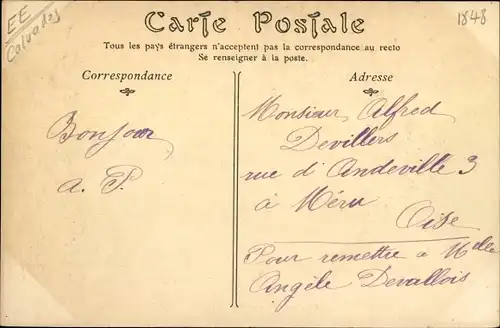 EE
Calvados
1848
Carte Postale
Tous les pays étrangers n'acceptent pas la correspondance au recto
Se renseigner à la poste.
Correspondance
Bonjour
a. P.
Adresse
Monsieur Alfred
Devillers
rue d'Andeville 3
à Méru
Oise
Pour remettre à Mlle
Angèle Devallois